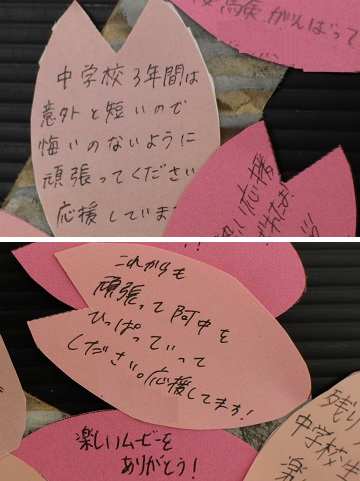 がんばって
中学校3年間は
意外と短いので
悔いのないように
頑張ってください
応援しています
応援
これからも
頑張って阿中を
ひっぱっていって
ください。応援してます!
楽しいムービーを
ありがとう!
残り
中学校生
楽